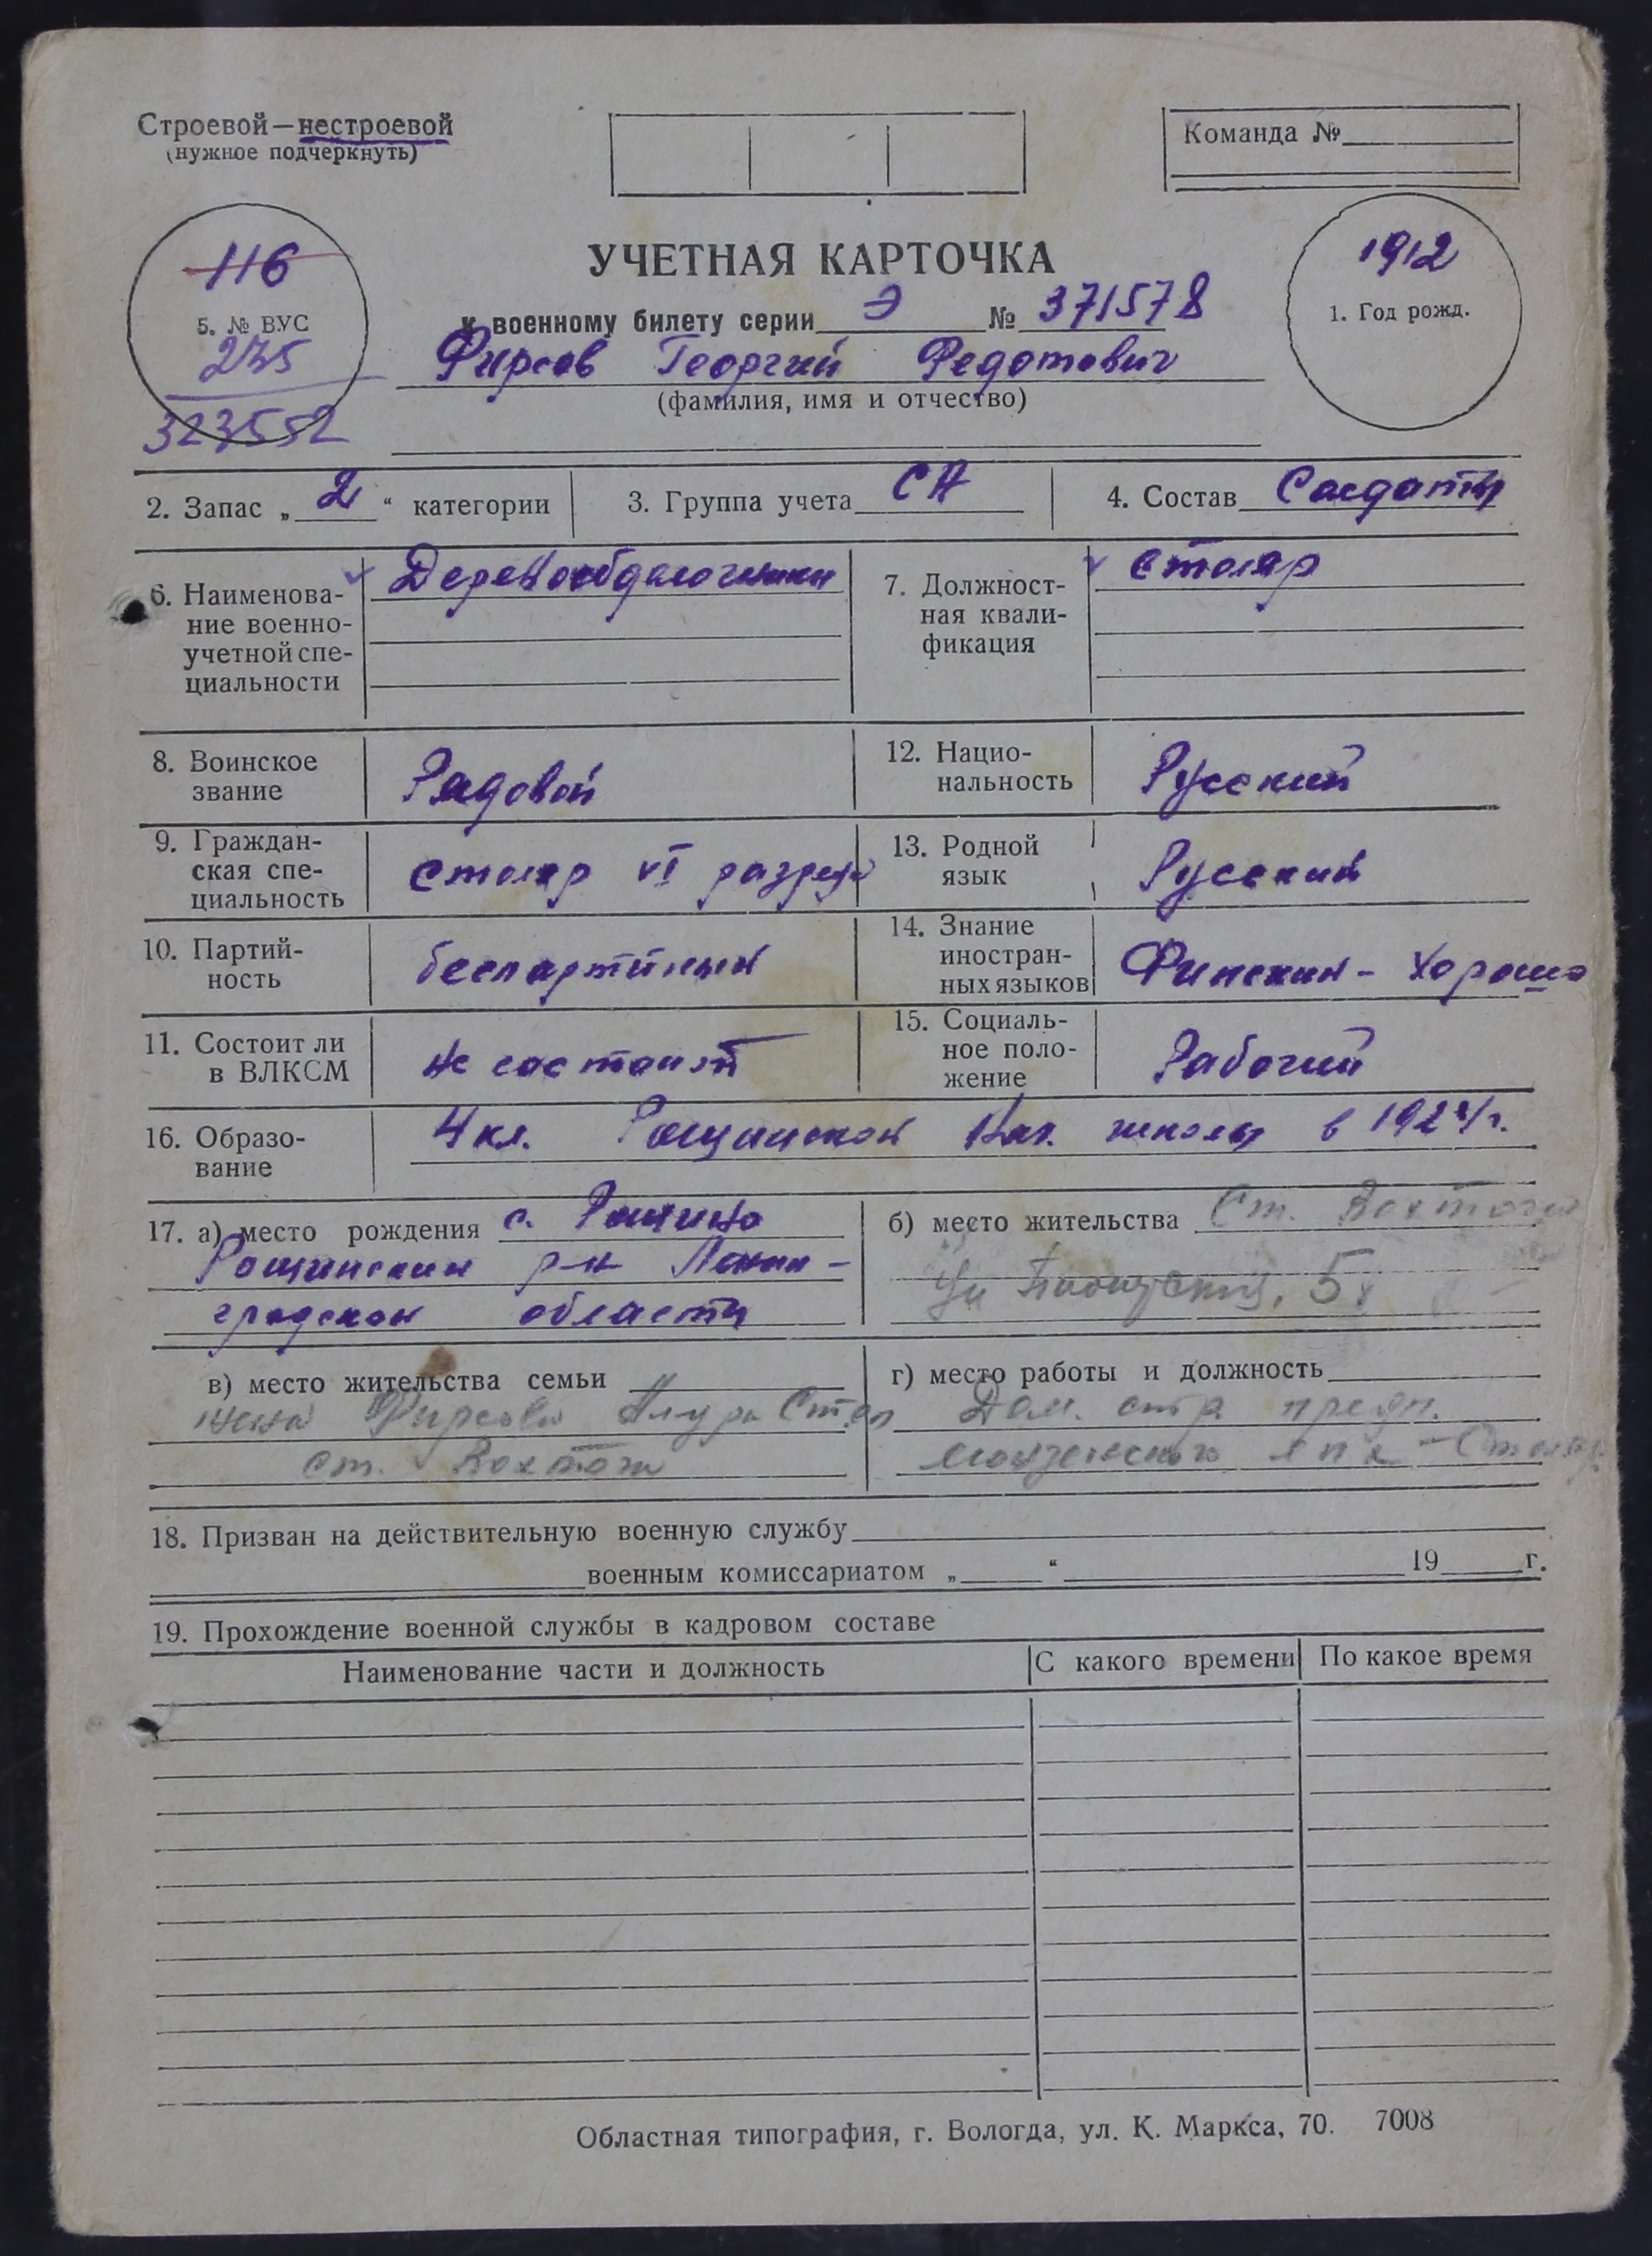 Строевой—нестроевой
(нужное подчеркнуть)
Команда №
116
5. № ВУС
235
323552
УЧЕТНАЯ КАРТОЧКА
к военному билету серии Э № 371578
Фирсов Георгий Федотович
(фамилия, имя и отчество)
1912
1. Год рожд.
2. Запас „2“ категории
3. Группа учета СА
4. Состав Солдаты
6. Наименова-
ние военно-
учетной спе-
циальности
Деревообделочники
7. Должност-
ная квали-
фикация
столяр
8. Воинское
звание
Рядовой
12. Нацио-
нальность
Русский
9. Граждан-
ская спе-
циальность
столяр VI разряда
13. Родной
язык
Русский
10. Партий-
ность
беспартийный
14. Знание
иностран-
ных языков
Финский - хорошо
11. Состоит ли
в ВЛКСМ
не состоит
15. Социаль-
ное поло-
жение
Рабочий
16. Образо-
вание
4 кл. Рощинской школы в 192 г.
17. а) место рождения с. Рощино
Рощинский р-н Ленин-
градской области
б) место жительства Ст. Вохтога
Ул. 5
в) место жительства семьи
жена Фирсова Ст.
ст. Вохтога
г) место работы и должность
Дом. стр. предп.
лпх - Столяр
18. Призван на действительную военную службу
военным комиссариатом „ “ 19 г.
19. Прохождение военной службы в кадровом составе
Наименование части и должность
С какого времени
По какое время
Областная типография, г. Вологда, ул. К. Маркса, 70. 7008